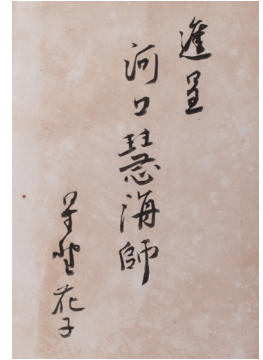 進呈
河口慧海師
花子